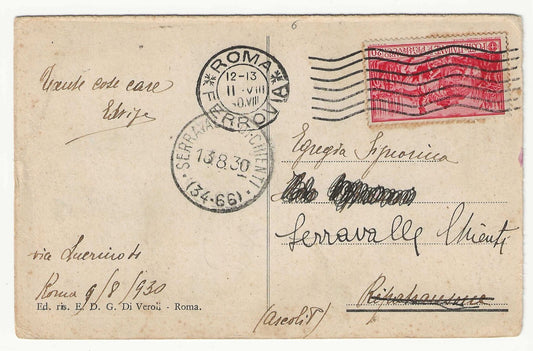 6
ROMA
FERROVIA
12-13
11·VIII
30.VIII
Tante cose care
SERRAVALLE CHIENTI
13 8.30
(34-66)
Egregia Signorina
Serravalle Chienti
(Ascoli)
via
Roma 9/8/930
Ed. ris. E. D. G. Di Veroli - Roma.